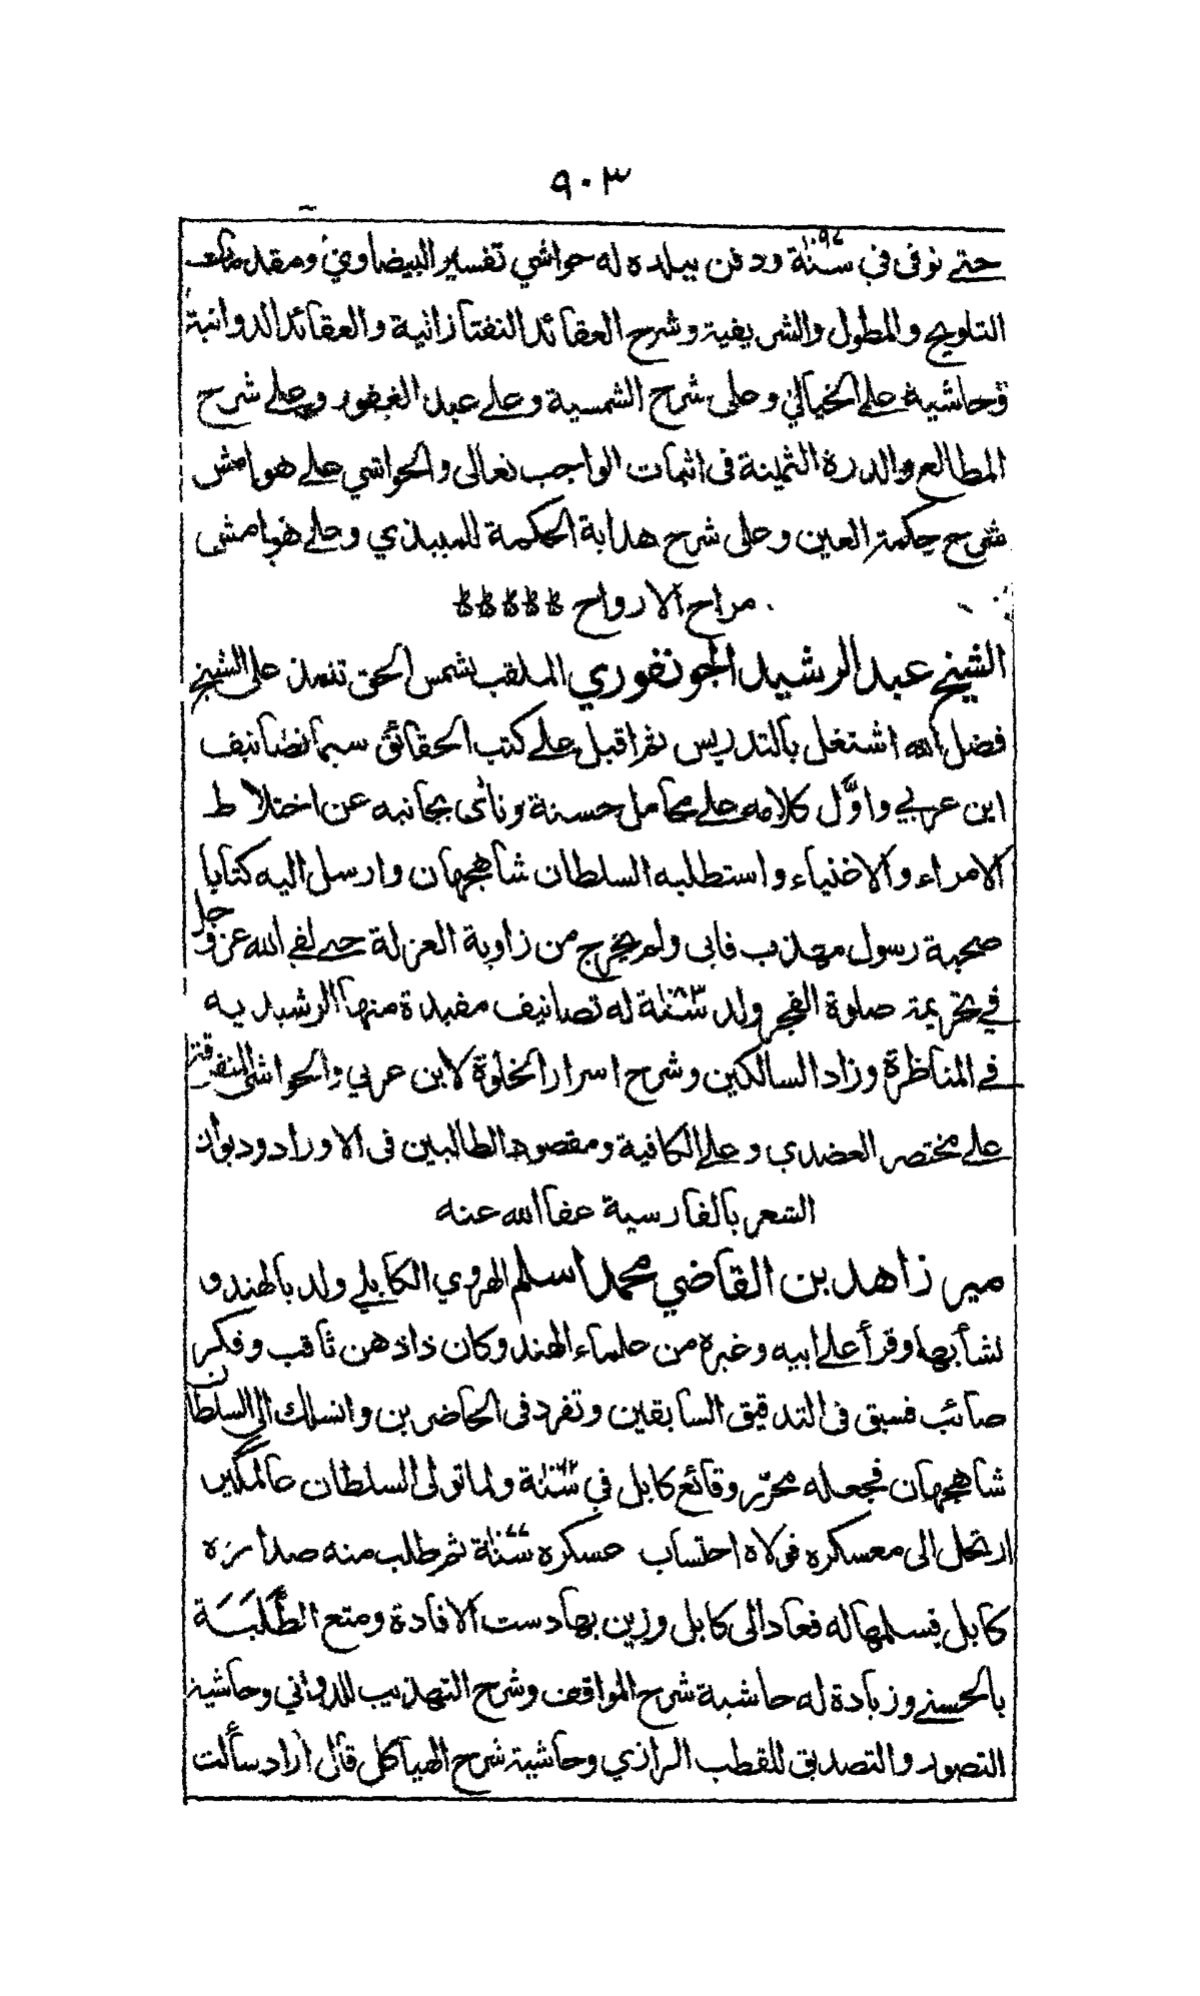 ٩٠٣
حتى توفى فى سنة ١٠٩٧ ودفن ببلده له حواشي تفسير البيضاوي ومقدمات
التلويح والمطول والشريفية وشرح العقائد التفتازانية والعقائد الدوانية
وحاشية على الخيالي وعلى شرح الشمسية وعلى عبد الغفور وعلى شرح
المطالع والدرة الثمينة فى اثبات الواجب تعالى والحواشي على هوامش
شرح حكمة العين وعلى شرح هداية الحكمة للميبذي وعلى هوامش
مراح الارواح
الشيخ عبد الرشيد الجونفوري الملقب بشمس الحق تلمذ على الشيخ
فضل الله اشتغل بالتدريس ثم اقبل على كتب الحقائق سيما تصانيف
ابن عربي واوَّل كلامه على محامل حسنة ونأى بجانبه عن اختلاط
الامراء والاغنياء واستطلبه السلطان شاهجهان وارسل اليه كتابا
صحبة رسول مهذب فابى ولم يخرج من زاوية العزلة حتى لقي الله عز وجل
في تحريمة صلوة الفجر ولد سنة له تصانيف مفيدة منها الرشيديه
في المناظرة وزاد السالكين وشرح اسرار الخلوة لابن عربي والحواشى المتفرقة
على مختصر العضدي وعلى الكافية ومقصود الطالبين فى الاوراد وديوان
الشعر بالفارسية عفا الله عنه
مير زاهد بن القاضي محمد اسلم الهروي الكابلي ولد بالهند و
نشأ بها وقرأ على ابيه وغيره من علماء الهند وكان ذا ذهن ثاقب وفكر
صائب فسبق فى التدقيق السابقين وتفرد فى الحاضرين وانسلك الى السلطان
شاهجهان فجعله محرّر وقائع كابل في سنة ولما تولى السلطان عالمگير
ارتحل الى معسكره فولاه احتساب عسكره سنة ١٠٧٧ ثم طلب منه صدارة
كابل فسلمها له فعاد الى كابل وزين بها دست الافادة ومتع الطَّلَبَة
بالحسنى وزيادة له حاشية شرح المواقف وشرح التهذيب للدواني وحاشية
التصور والتصديق للقطب الرازي وحاشية شرح الهياكل قال آزاد سألت